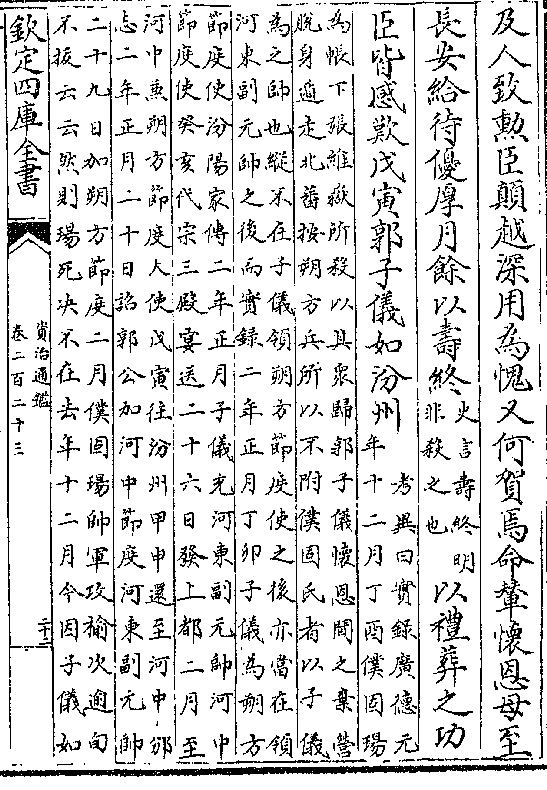 及人致勲臣顛越深用為愧又何賀焉命輦懐恩母至
長安給待優厚月餘以壽終史言壽終明非殺之也以禮葬之功
臣皆感歎戊寅郭子儀如汾州考異曰實録廣徳元年十二月丁酉僕固瑒
為帳下張維嶽所殺以其衆歸郭子儀懐恩聞之棄營
脱身遁走北蕃按朔方兵所以不附僕固氏者以子儀
為之帥也縱不在子儀領朔方節度使之後亦當在領
河東副元帥之後而實録二年正月丁卯子儀為朔方
節度使汾陽家傳二年正月子儀充河東副元帥河中
節度使癸亥代宗三殿宴送二十六日發上都二月至
河中兼朔方節度大使戊寅往汾州甲申還至河中邠
志二年正月二十日詔郭公加河中節度河東副元帥
二十九日加朔方節度二月僕固瑒帥軍攻榆次逾旬
不拔云云然則瑒死决不在去年十二月今因子儀如
欽定四庫全書
資治通鑑
卷二百二十三
二十三